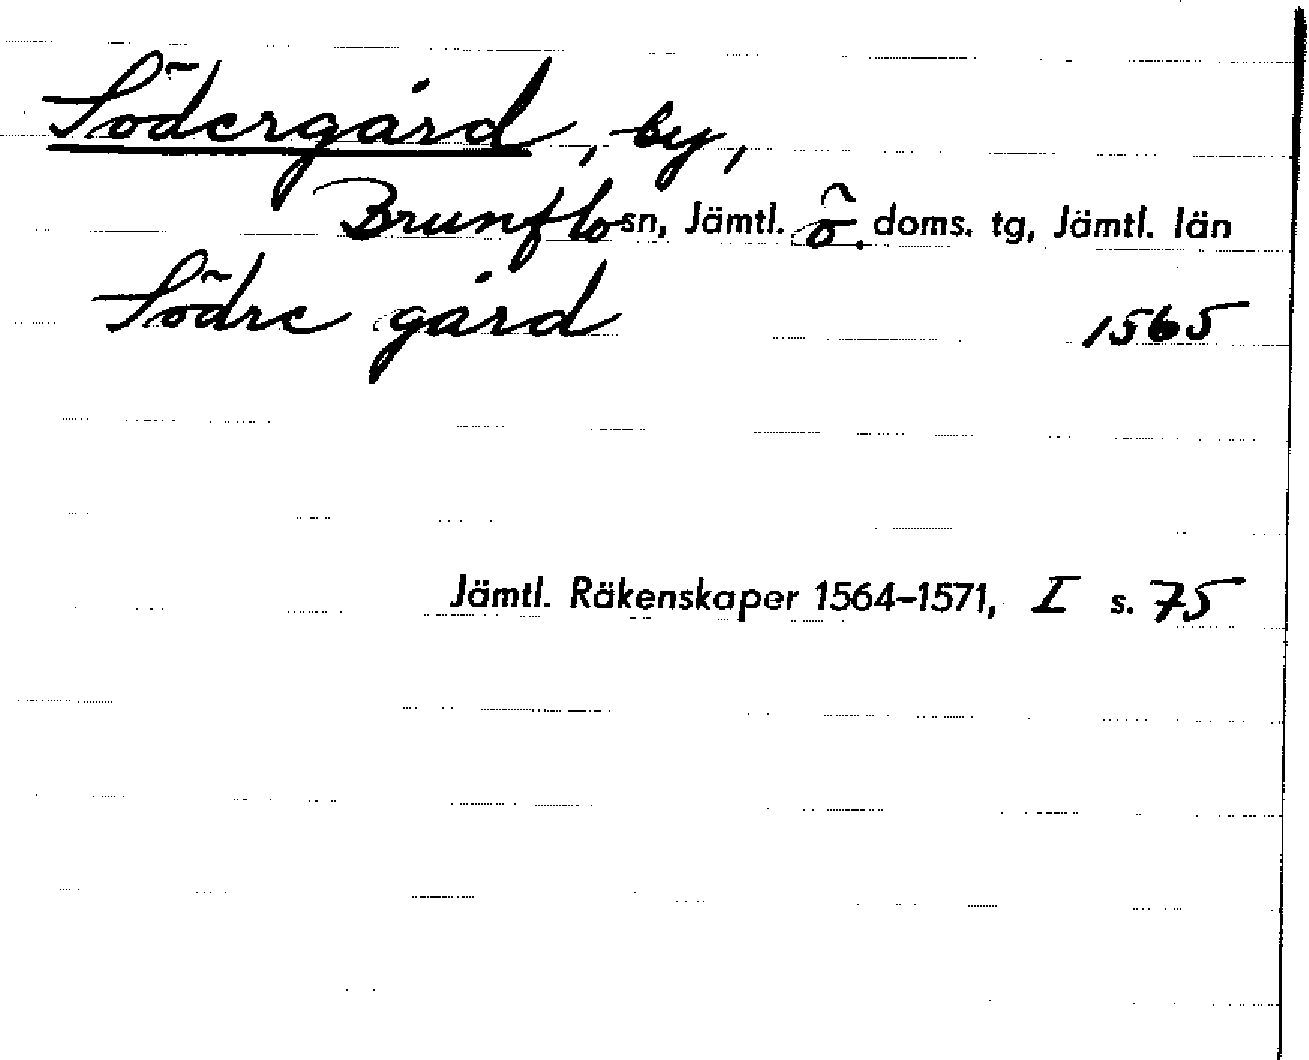 Södergård, by,
Brunflo sn, Jämtl. ö. doms. tg, Jämtl. län
Södre gård 1565
Jämtl. Räkenskaper 1564-1571, I s. 75